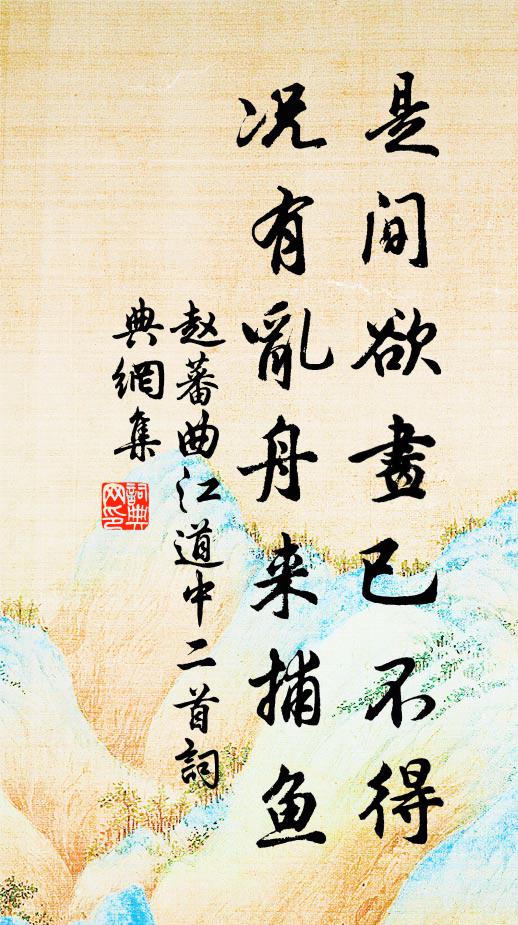 是间欲畫已不得
况有亂舟来捕鱼
赵蕃曲江道中二首詞
典網集
詞典
网印